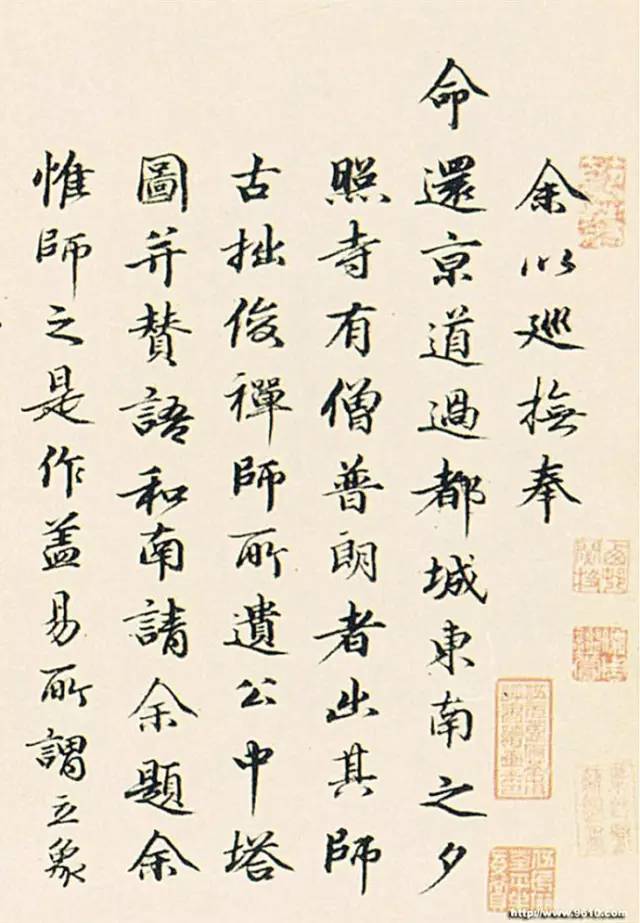 余以廵撫奉
命還京道過都城東南之夕
照寺有僧普朗者出其師
古拙俊禪師所遺公中塔
圖并賛語和南請余題余
惟師之是作盖易所謂立象
http://www.9610.com